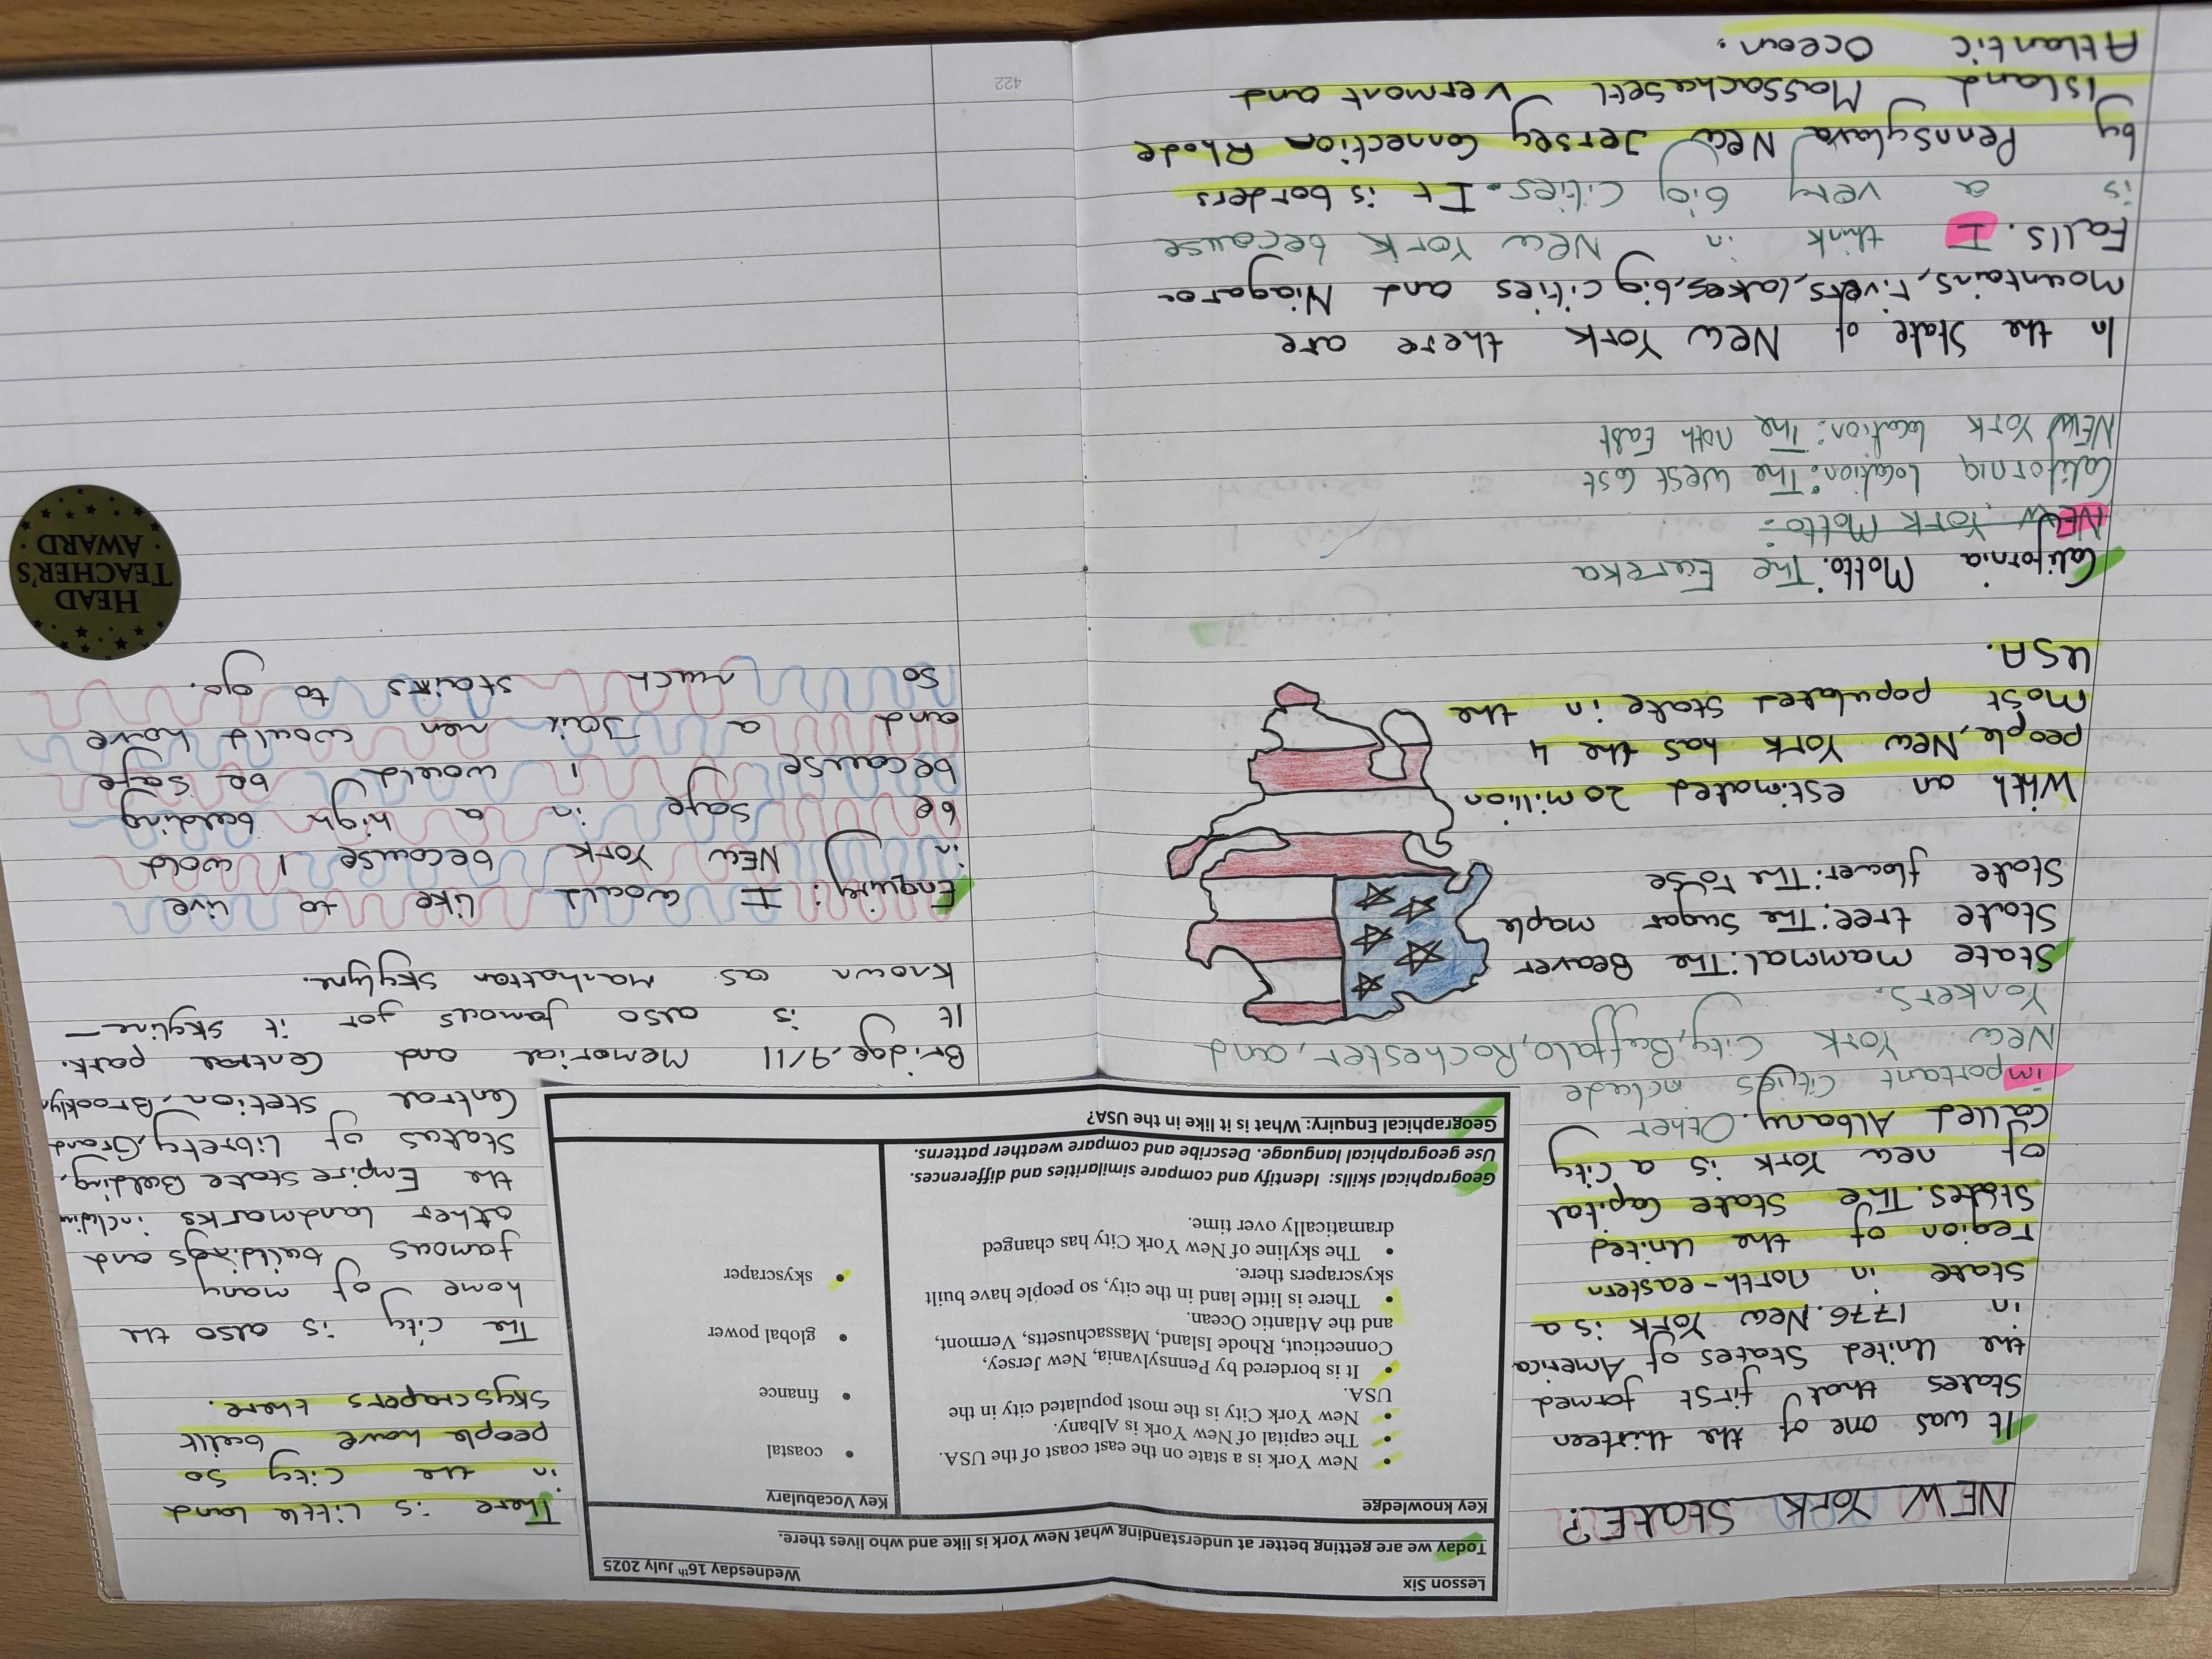 NEW YORK STATE?
It was one of the thirteen
states that first formed
the United States of America
in 1776. New York is a
state in north-eastern
region of the United
States. The state capital
of new York is a city
called Albany. Other
important cities include
New York City, Buffalo, Rochester, and
Yonkers.
State mammal: The Beaver
State tree: The sugar maple
State flower: The rose
With an estimated 20 million
people, New York has the 4
most populated state in the
USA.
California Motto: The Eureka
NEW York Motto:
California location: The west cost
NEW York location: The noth East
In the state of New York there are
mountains, rivers, lakes, big cities and Niagara
Falls. I think in New York because
is a very big cities. It is borders
by Pensylava New Jersey Conection Rhode
Island Massachasett Vermont and
Atlantic Ocean.
Lesson Six
Wednesday 16th July 2025
Today we are getting better at understanding what New York is like and who lives there.
Key knowledge
• New York is a state on the east coast of the USA.
• The capital of New York is Albany.
• New York City is the most populated city in the
USA.
• It is bordered by Pennsylvania, New Jersey,
Connecticut, Rhode Island, Massachusetts, Vermont,
and the Atlantic Ocean.
• There is little land in the city, so people have built
skyscrapers there.
• The skyline of New York City has changed
dramatically over time.
Key Vocabulary
• coastal
• finance
• global power
• skyscraper
Geographical skills: Identify and compare similarities and differences.
Use geographical language. Describe and compare weather patterns.
Geographical Enquiry: What is it like in the USA?
There is little land
in the city so
people have built
skyscrapers there.
The city is also the
home of many
famous buildings and
other landmarks includin
the Empire State Building,
Status of Librety, Grand
Central Stetion, Brooklyn
Bridge, 9/11 Memorial and Central park.
It is also famous for it skyline-
known as Manhattan skylyne.
Enquiry: I would like to live
in NEW York because I wold
be safe in a high building
because I would be safe
and a Jail men would have
so much stairs to go.
HEAD
TEACHER'S
AWARD
422